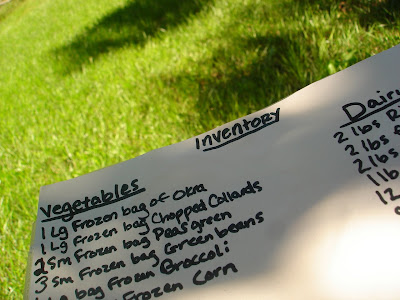 Inventory
Vegetables
1 Lg Frozen bag of Okra
1 Lg Frozen bag Chopped Collards
2 Sm Frozen bag Peas green
3 Sm Frozen bag Green beans
bag Frozen Broccoli
Frozen Corn
Dairy
2 lbs
2 lbs
2 lbs
1 lb
12